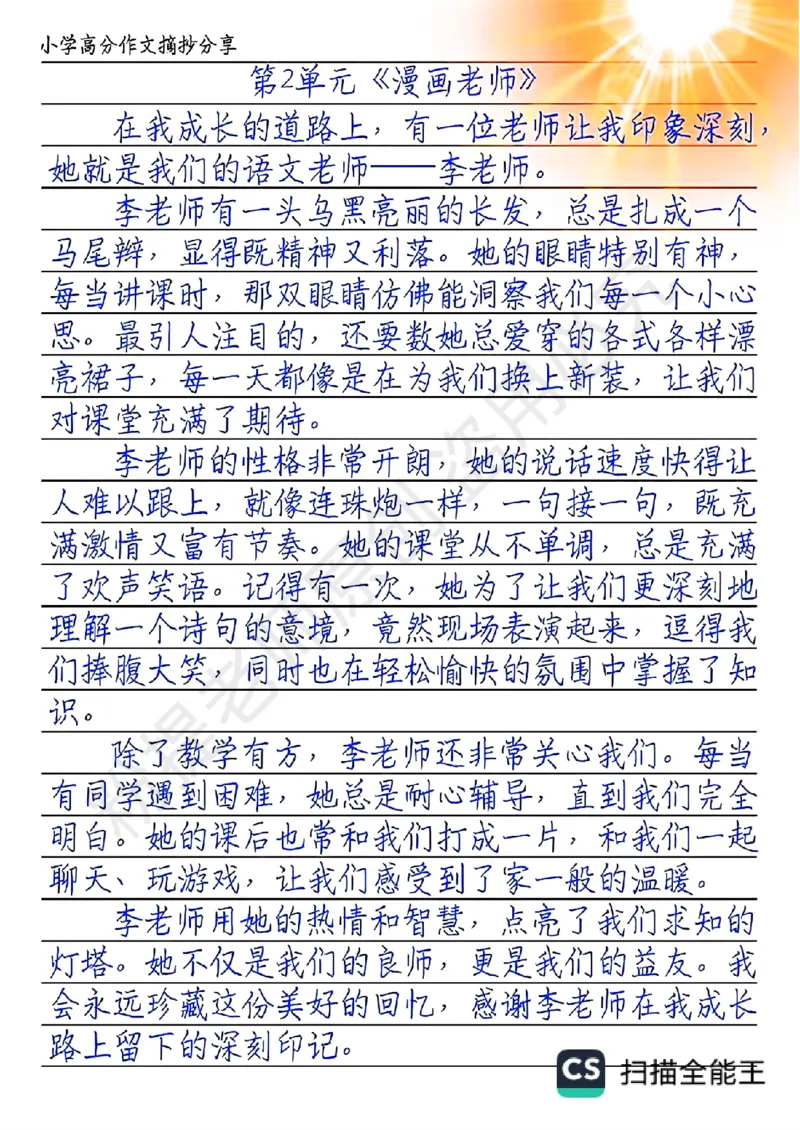 小学高分作文摘抄分享
第2单元《漫画老师》
在我成长的道路上，有一位老师让我印象深刻，
她就是我们的语文老师——李老师。
李老师有一头乌黑亮丽的长发，总是扎成一个
马尾辫，显得既精神又利落。她的眼睛特别有神，
每当讲课时，那双眼睛仿佛能洞察我们每一个小心
思。最引人注目的，还要数她总爱穿的各式各样漂
亮裙子，每一天都像是在为我们换上新装，让我们
对课堂充满了期待。
李老师的性格非常开朗，她的说话速度快得让
人难以跟上，就像连珠炮一样，一句接一句，既充
满激情又富有节奏。她的课堂从不单调，总是充满
了欢声笑语。记得有一次，她为了让我们更深刻地
理解一个诗句的意境，竟然现场表演起来，逗得我
们捧腹大笑，同时也在轻松愉快的氛围中掌握了知
识。
除了教学有方，李老师还非常关心我们。每当
有同学遇到困难，她总是耐心辅导，直到我们完全
明白。她的课后也常和我们打成一片，和我们一起
聊天、玩游戏，让我们感受到了家一般的温暖。
李老师用她的热情和智慧，点亮了我们求知的
灯塔。她不仅是我们的良师，更是我们的益友。我
会永远珍藏这份美好的回忆，感谢李老师在我成长
路上留下的深刻印记。
CS 扫描全能王